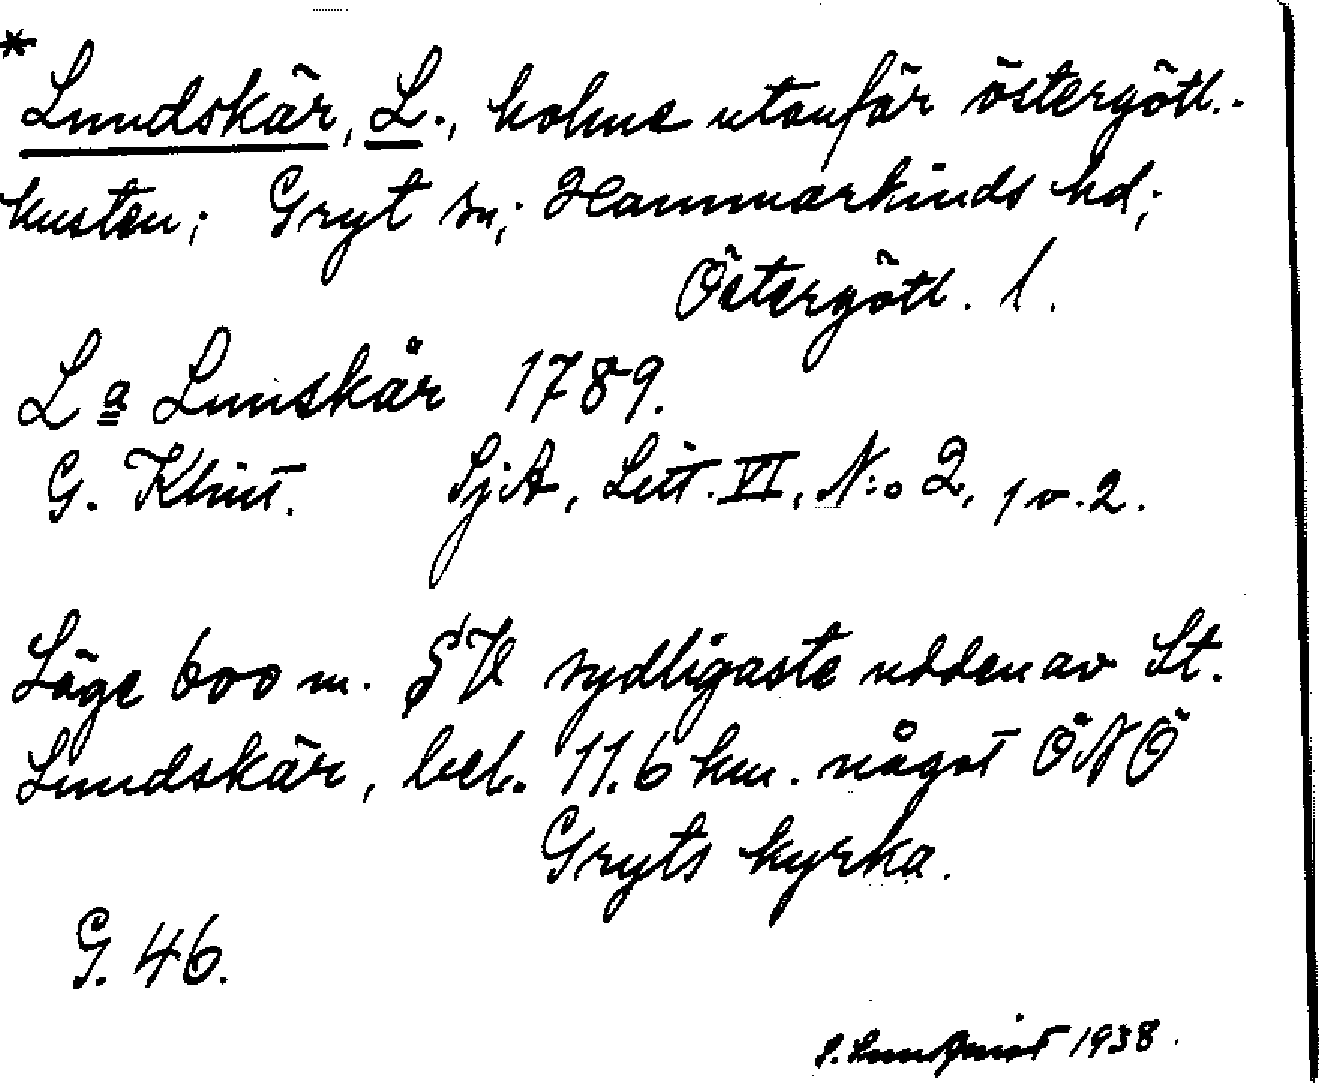 * Lundskär, L., holme utanför östergötl.-
kusten; Gryt sn; Hammarkinds hd;
Östergötl. l.
La Lunskär 1789.
G. Klint. SjA, Litt. VI, N:o 2, 1 o. 2.
Läge 600 m. SV sydligaste udden av St.
Lundskär, bel. 11.6 km. något ÖNÖ
Gryts kyrka.
G. 46.
S. Lundqvist 1938.